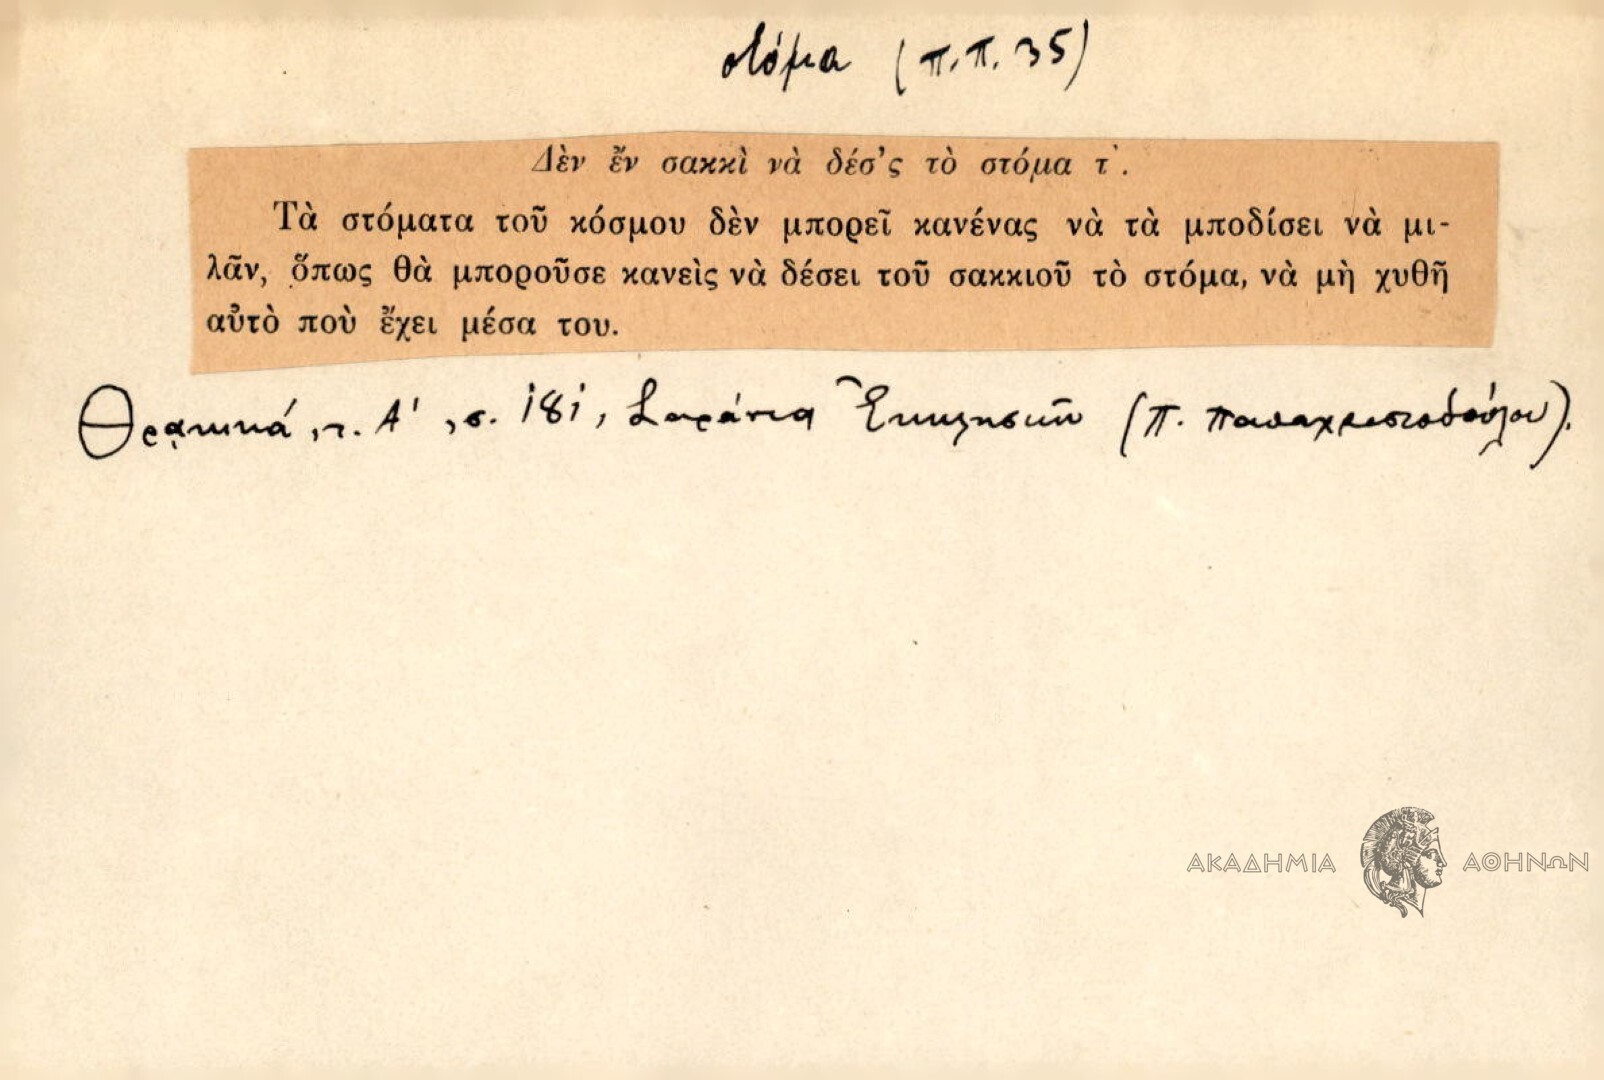 στόμα (π.π. 35)
Δὲν ἔν σακκὶ νὰ δέσ'ς τὸ στόμα τ'.
Τὰ στόματα τοῦ κόσμου δὲν μπορεῖ κανένας νὰ τὰ μποδίσει νὰ μι-
λᾶν, ὅπως θὰ μποροῦσε κανεὶς νὰ δέσει τοῦ σακκιοῦ τὸ στόμα, νὰ μὴ χυθῆ
αὐτὸ ποὺ ἔχει μέσα του.
Θρακικά, τ. Α', σ. 181, Σαράντα Ἐκκλησιῶν (Π. Παπαχριστοδούλου).
ΑΚΑΔΗΜΙΑ ΑΘΗΝΩΝ